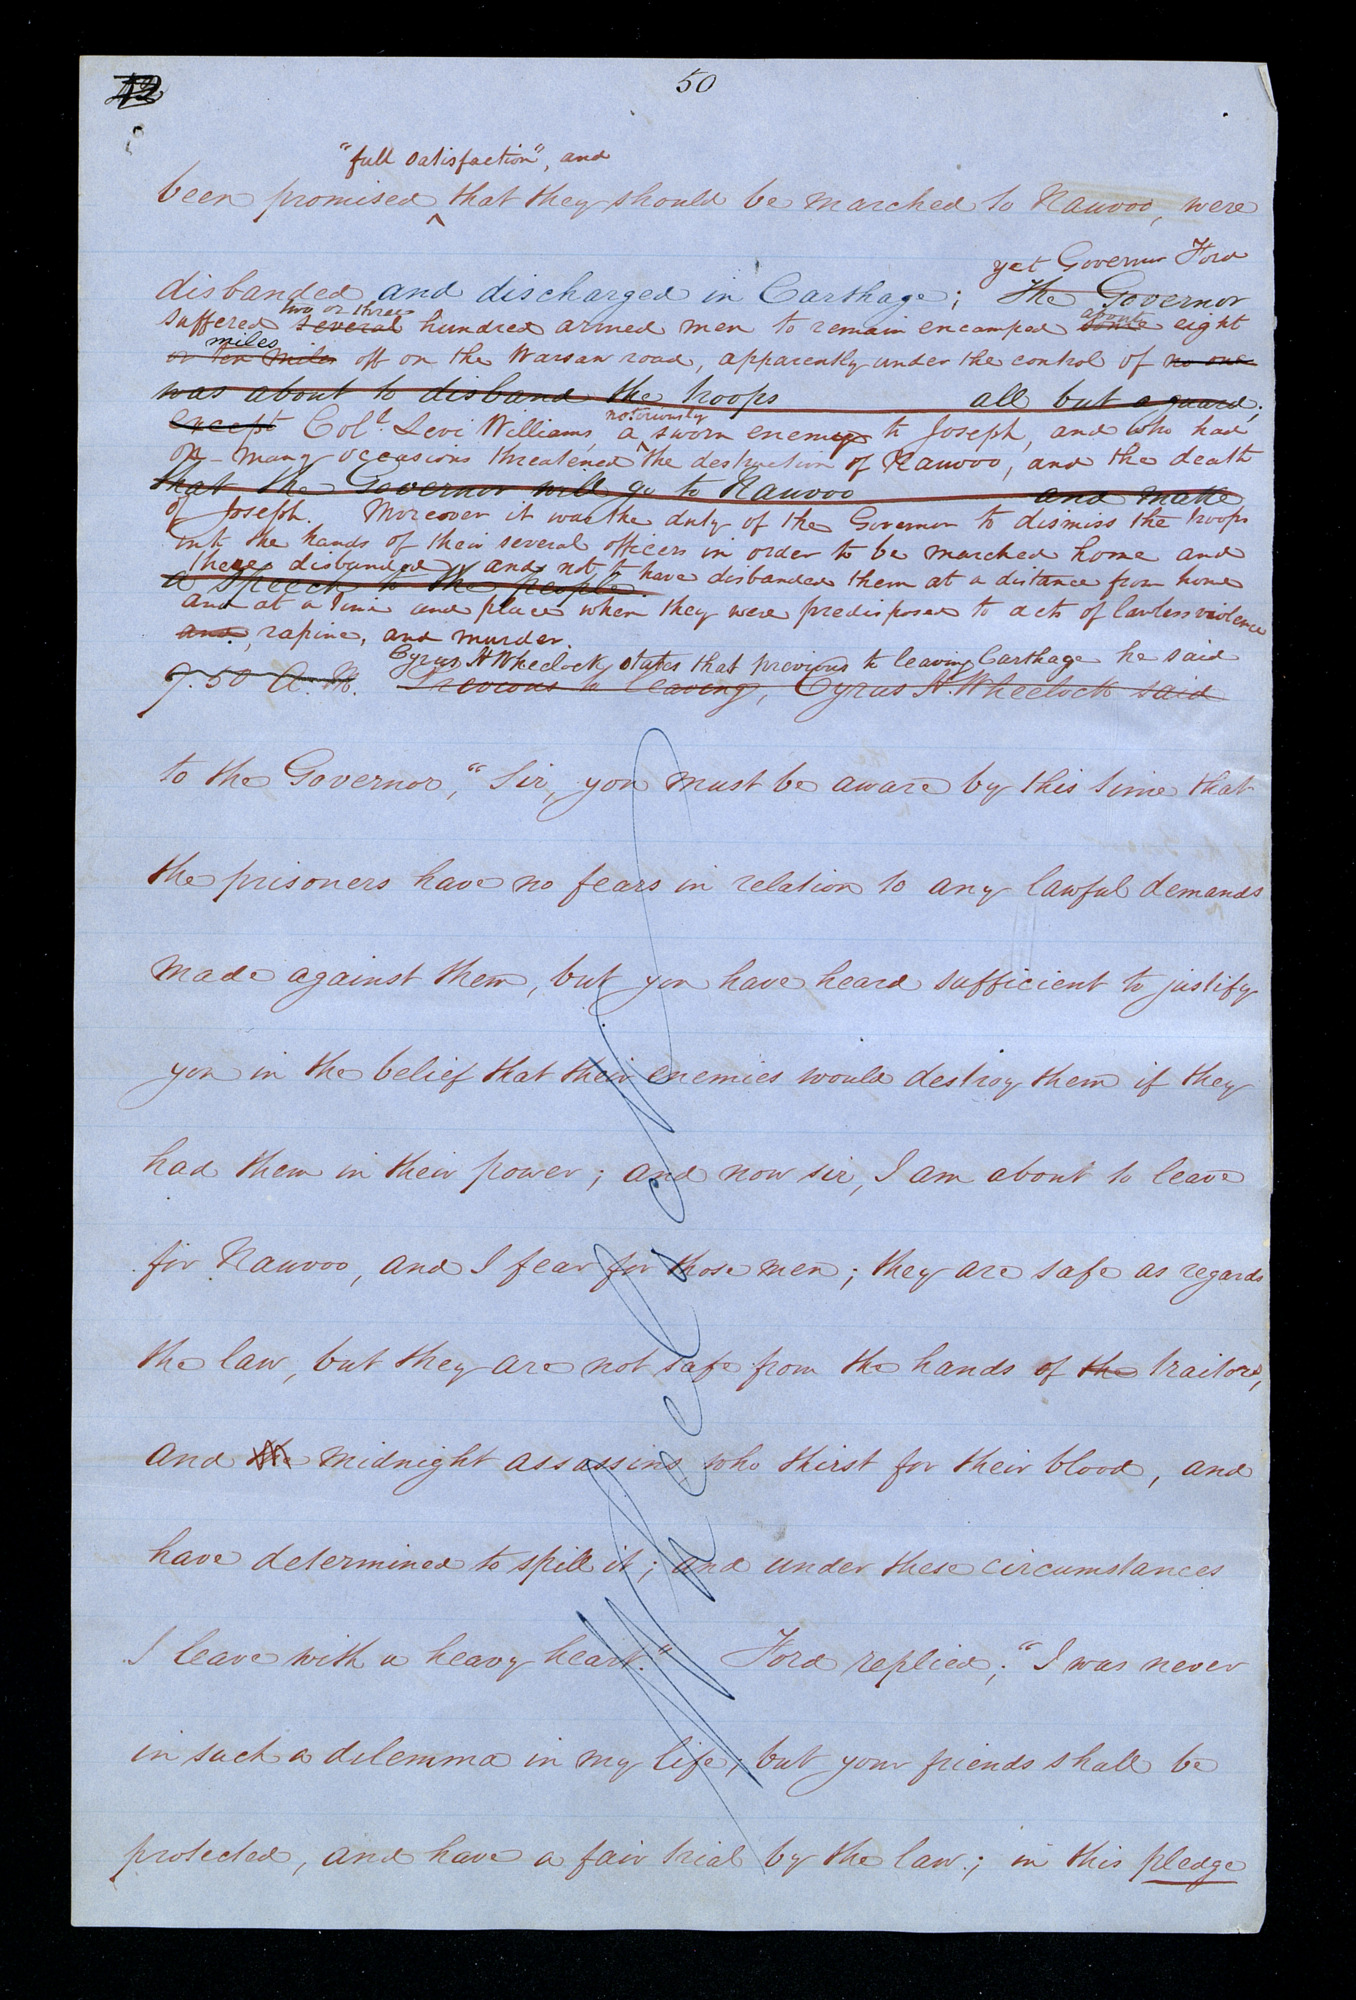 50
"full satisfaction", and
been promised ^ that they should be marched to Nauvoo, were
yet Governor Ford
disbanded and discharged in Carthage; The Governor
two or three about
suffered several hundred armed men to remain encamped some eight
miles
or ten miles off on the Warsaw road, apparently under the control of no one
was about to disband the troops all but a guard;
notoriously
except Col. Levi Williams, a ^ sworn enemy to Joseph, and who had
on many occasions threatened the destruction of Nauvoo, and the death
that the Governor will go to Nauvoo and make
of Joseph. Moreover it was the duty of the Governor to dismiss the troops
into the hands of their several officers in order to be marched home and
there disbanded, and not to have disbanded them at a distance from home
a speech to the people.
and at a time and place when they were predisposed to acts of lawless violence
and, rapine, and murder.
Cyrus H Wheelock states that previous to leaving Carthage he said
9.50 A.M. Previous to leaving, Cyrus H. Wheelock said
to the Governor, "Sir, you must be aware by this time that
the prisoners have no fears in relation to any lawful demands
made against them, but you have heard sufficient to justify
you in the belief that their enemies would destroy them if they
had them in their power; and now sir, I am about to leave
for Nauvoo, and I fear for those men; they are safe as regards
the law, but they are not safe from the hands of the traitors,
and the midnight assassins who thirst for their blood, and
have determined to spill it; and under these circumstances
I leave with a heavy heart." Ford replied; "I was never
in such a dilemma in my life; but your friends shall be
protected, and have a fair trial by the law; in this pledge